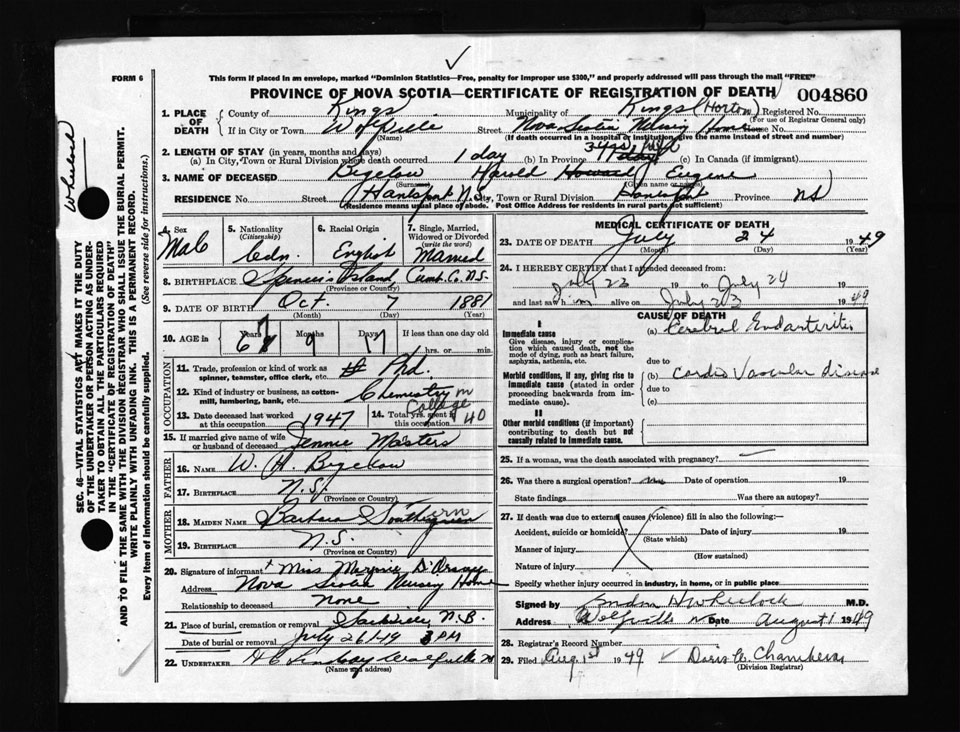 FORM 6
This form if placed in an envelope, marked "Dominion Statistics—Free, penalty for improper use $300," and properly addressed will pass through the mail "FREE"
PROVINCE OF NOVA SCOTIA—CERTIFICATE OF REGISTRATION OF DEATH 004860
1. PLACE OF DEATH County of Kings Municipality of Kings (Horton) Registered No.
(For use of Registrar General only)
If in City or Town Wolfville Street Nova Scotia Nursing Home House No.
(Name) (If death occurred in a hospital or institution, give the name instead of street and number)
2. LENGTH OF STAY (in years, months and days)
(a) In City, Town or Rural Division where death occurred 1 day (b) In Province (c) In Canada (if immigrant)
3. NAME OF DECEASED Bigelow Harold Howard Eugene
(Surname) (Given name or names)
RESIDENCE No. Street Hantsport N.S. City, Town or Rural Division Hantsport Province NS
(Residence means usual place of abode. Post Office Address for residents in rural parts not sufficient)
4. Sex Male
5. Nationality (Citizenship) Cdn.
6. Racial Origin English
7. Single, Married, Widowed or Divorced (write the word) Married
8. BIRTHPLACE Spencer's Island Cumb. Co. N.S.
(Province or Country)
9. DATE OF BIRTH Oct. 7 1881
(Month) (Day) (Year)
10. AGE in Years 67 Months 9 Days 17 If less than one day old
hrs. or min.
OCCUPATION
11. Trade, profession or kind of work as spinner, teamster, office clerk, etc. Phd.
12. Kind of industry or business, as cotton-mill, lumbering, bank, etc. Chemistry in College
13. Date deceased last worked at this occupation 1947
14. Total yrs. spent in this occupation 40
15. If married give name of wife or husband of deceased Jennie Masters
FATHER
16. NAME W. H. Bigelow
17. BIRTHPLACE N.S.
(Province or Country)
MOTHER
18. MAIDEN NAME Barbara Southern
19. BIRTHPLACE N.S.
(Province or Country)
20. Signature of informant Miss Marjorie
Address Nova Scotia Nursing Home
Relationship to deceased None
21. Place of burial, cremation or removal Sackville, N.B.
Date of burial or removal July 26/49 3 PM
22. UNDERTAKER H C Lindsay Wolfville N
(Name and address)
MEDICAL CERTIFICATE OF DEATH
23. DATE OF DEATH July 24 1949
(Month) (Day) (Year)
24. I HEREBY CERTIFY that I attended deceased from:
July 23 19 to July 24
and last saw him alive on July 23 1949
CAUSE OF DEATH
I
Immediate cause
Give disease, injury or complication which caused death, not the mode of dying, such as heart failure, asphyxia, asthenia, etc.
(a) Cerebral Endarteritis
due to
Morbid conditions, if any, giving rise to immediate cause (stated in order proceeding backwards from immediate cause).
(b) Cardio Vascular disease
due to
(c)
II
Other morbid conditions (if important) contributing to death but not causally related to immediate cause.
25. If a woman, was the death associated with pregnancy?
26. Was there a surgical operation? no Date of operation 19
State findings Was there an autopsy?
27. If death was due to external causes (violence) fill in also the following:—
Accident, suicide or homicide? Date of injury 19
(State which)
Manner of injury
(How sustained)
Nature of injury
Specify whether injury occurred in industry, in home, or in public place
Signed by H Wheelock M.D.
Address Wolfville N Date August 1 1949
28. Registrar's Record Number
29. Filed Aug 1st 1949 Doris W. Chambers
(Division Registrar)
Wheelock
SEC. 46—VITAL STATISTICS ACT MAKES IT THE DUTY OF THE UNDERTAKER OR PERSON ACTING AS UNDERTAKER TO OBTAIN ALL THE PARTICULARS REQUIRED IN THE "CERTIFICATE OF REGISTRATION OF DEATH" AND TO FILE THE SAME WITH THE DIVISION REGISTRAR WHO SHALL ISSUE THE BURIAL PERMIT.
WRITE PLAINLY WITH UNFADING INK. THIS IS A PERMANENT RECORD.
Every item of information should be carefully supplied. (See reverse side for instructions.)